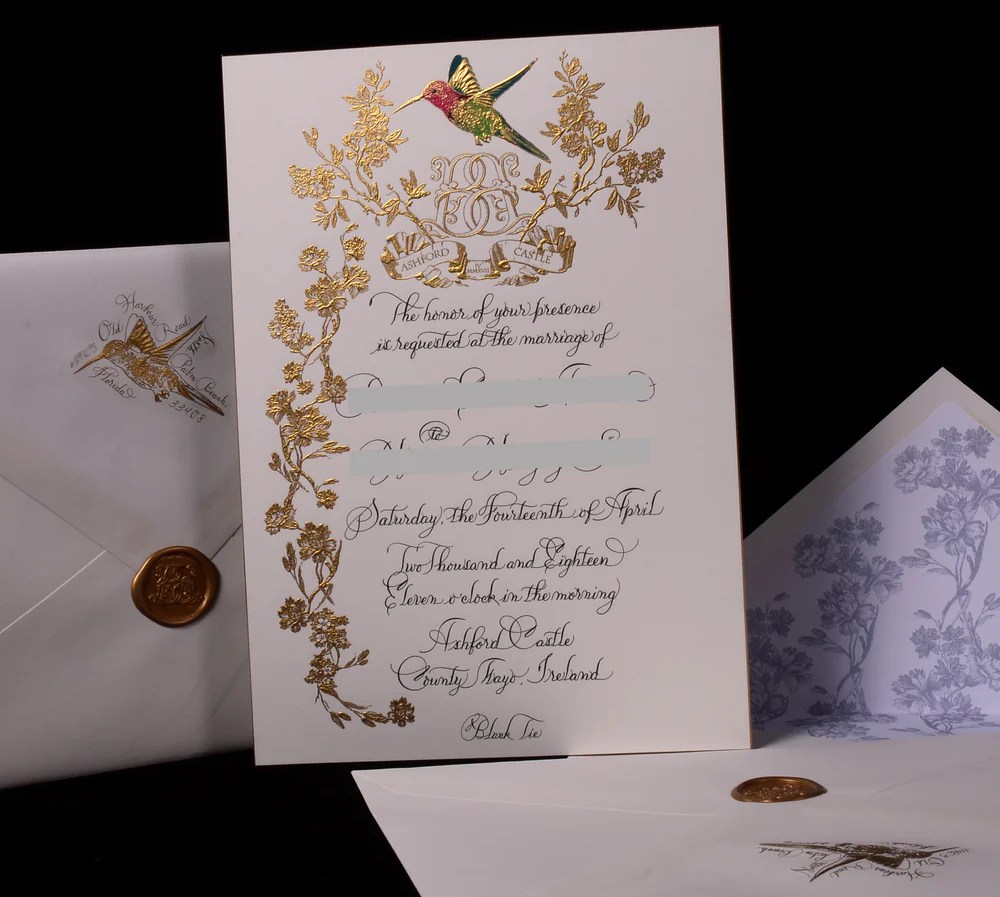 ASHFORD CASTLE
IV
MMXVIII
The honor of your presence
is requested at the marriage of
to
Saturday, the Fourteenth of April
Two Thousand and Eighteen
Eleven o'clock in the morning
Ashford Castle
County Mayo, Ireland
Black Tie
Old Harbour Road
North Palm Beach
Florida
33408